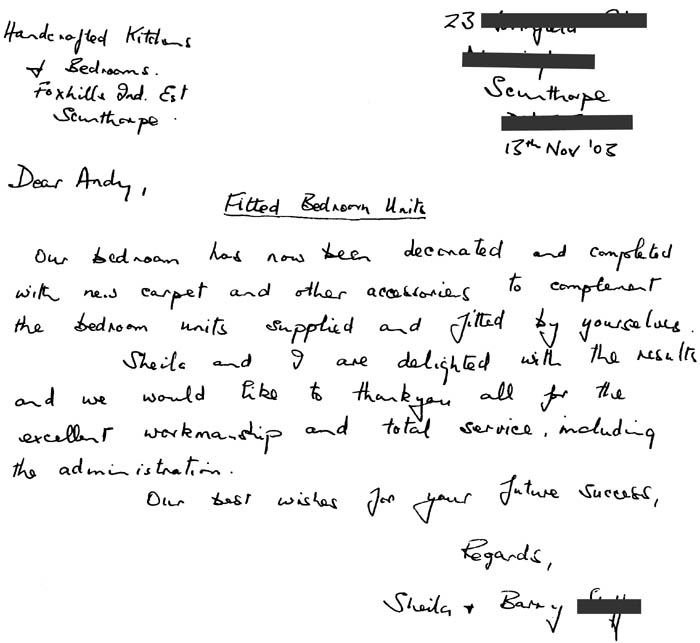 Handcrafted Kitchens
+ Bedrooms.
Foxhills Ind. Est
Scunthorpe.
23
Scunthorpe
13th Nov '03
Dear Andy,
Fitted Bedroom Units
Our bedroom has now been decorated and completed
with new carpet and other accessories to complement
the bedroom units supplied and fitted by yourselves.
Sheila and I are delighted with the results
and we would like to thankyou all for the
excellent workmanship and total service, including
the administration.
Our best wishes for your future success,
Regards,
Sheila + Barry